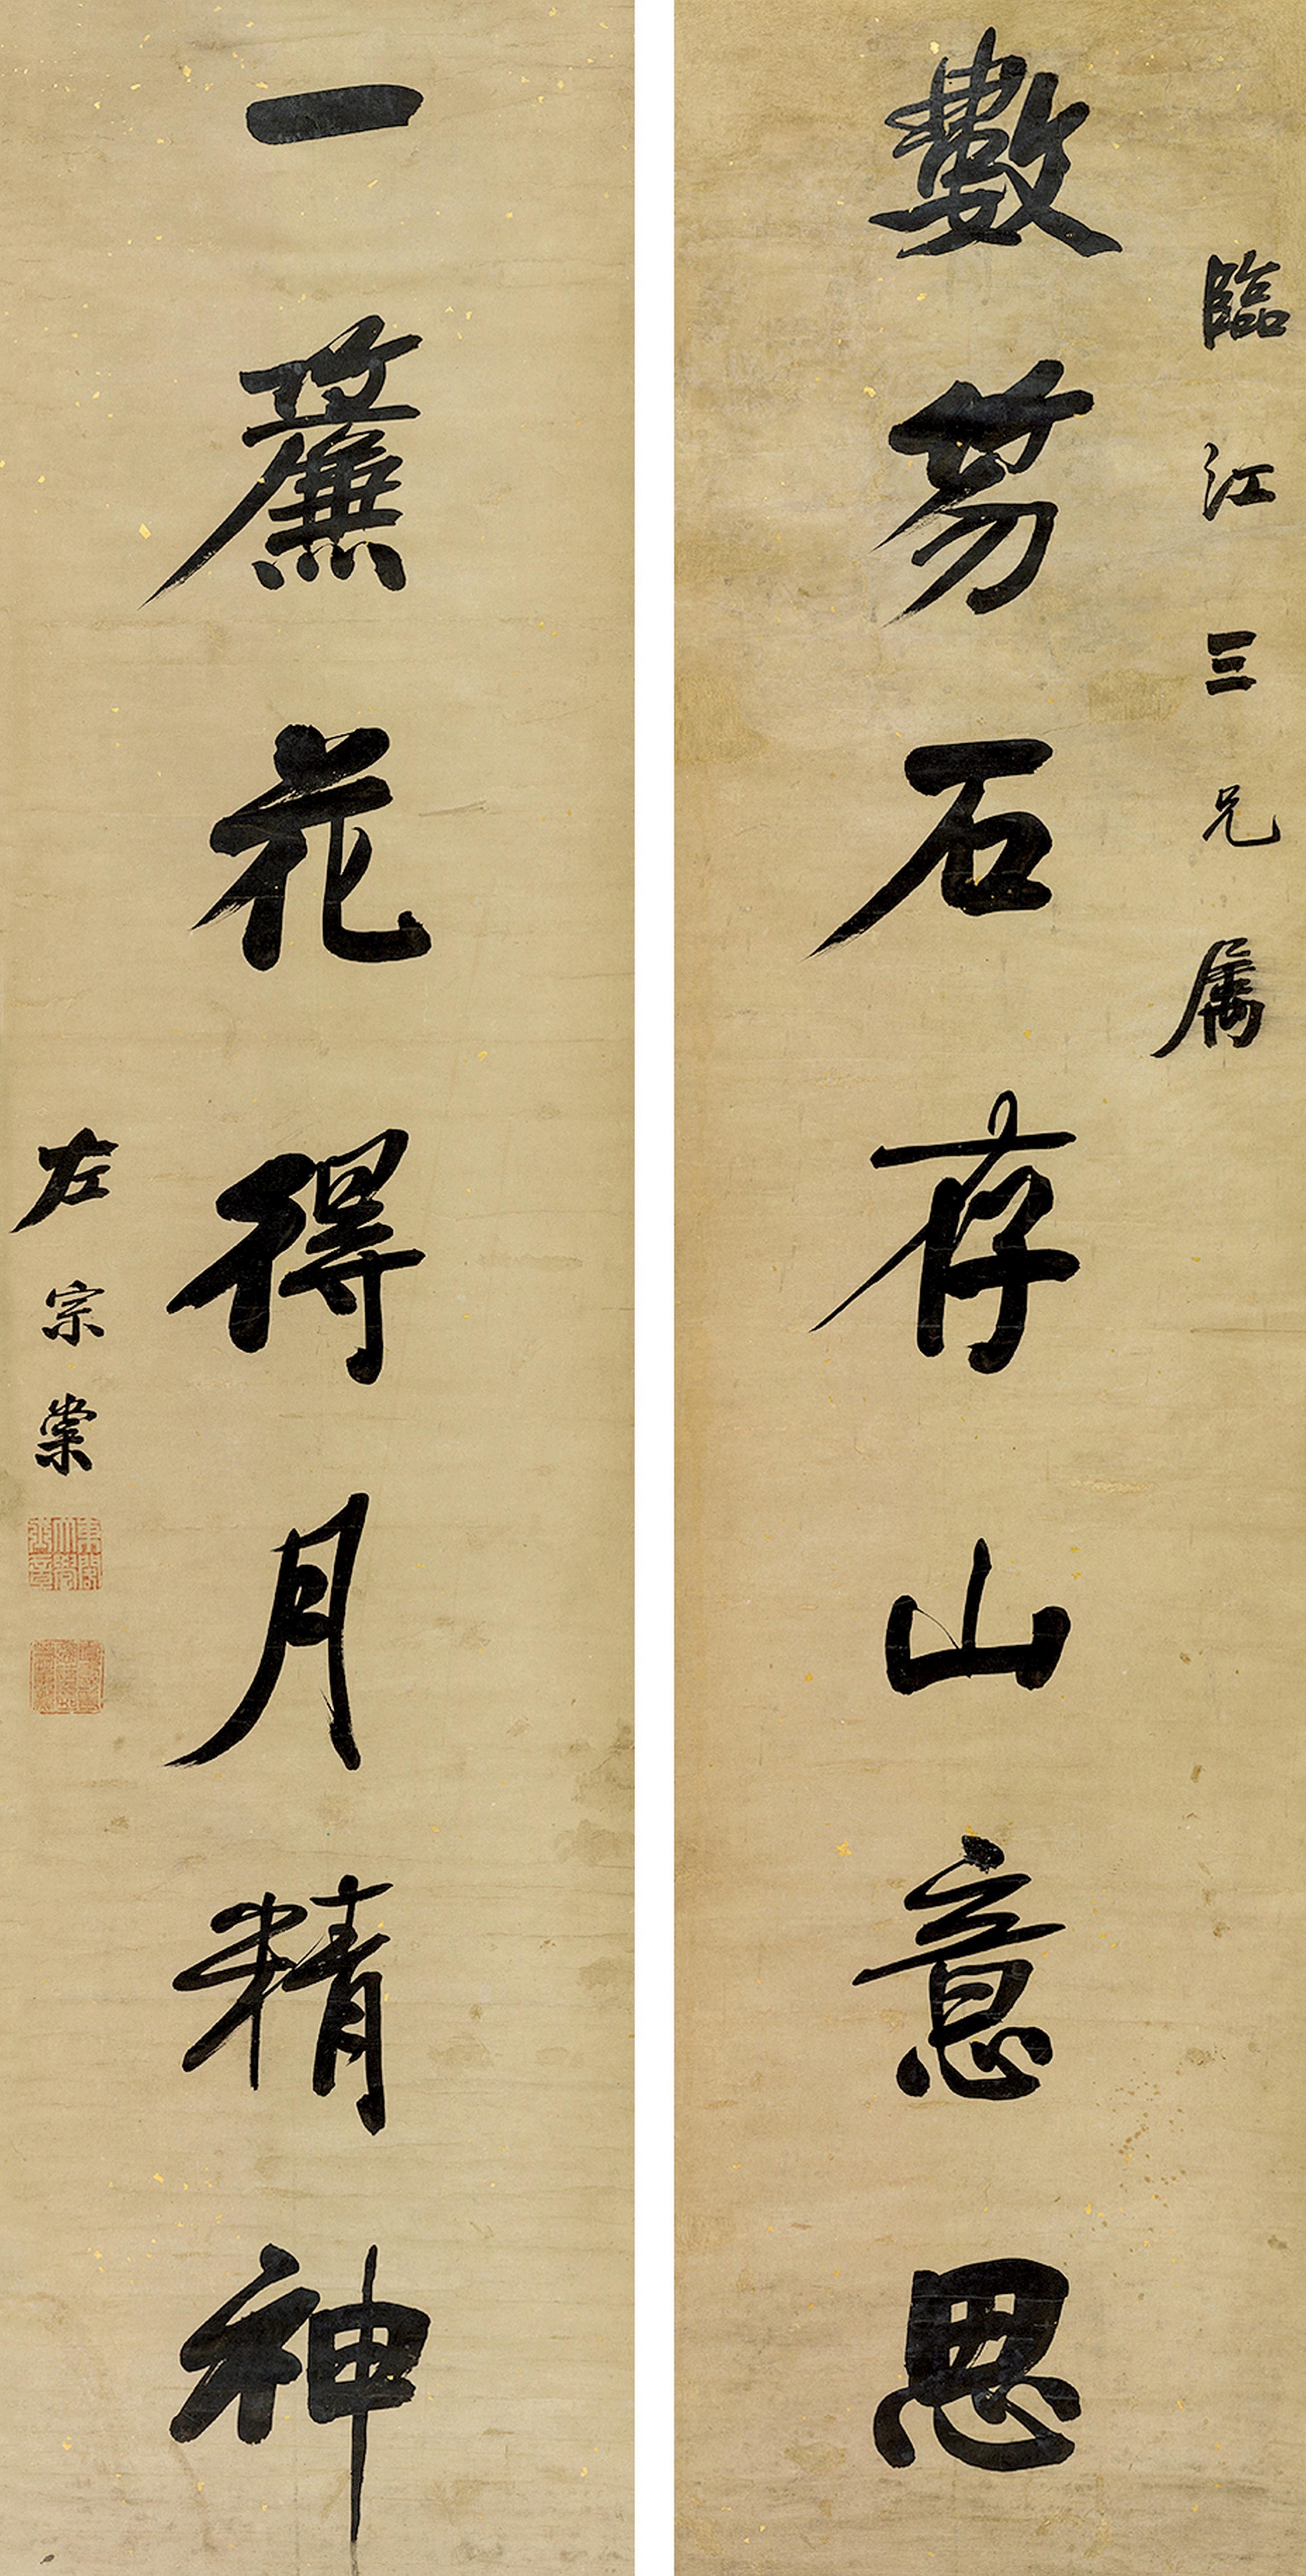 臨江三兄属
數笏石存山意思
一簾花得月精神
左宗棠